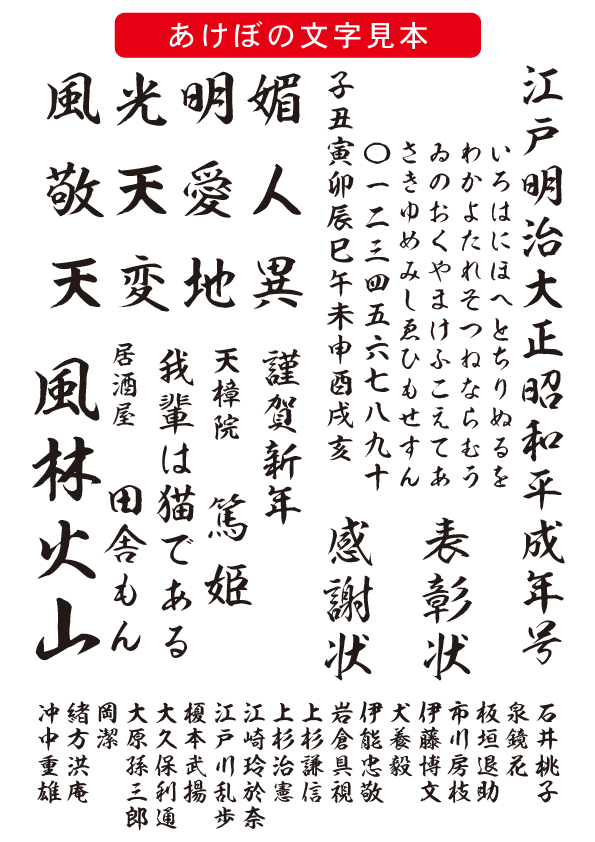 あけぼの文字見本
江戸明治大正昭和平成年号
いろはにほへとちりぬるを
わかよたれそつねならむう
ゐのおくやまけふこえてあ
さきゆめみしゑひもせすん
〇一二三四五六七八九十
子丑寅卯辰巳午未申酉戌亥
媚人異
明愛地
光天変
風敬天
表彰状
感謝状
謹賀新年
天樟院 篤姫
我輩は猫である
居酒屋 田舎もん
風林火山
石井桃子
泉鏡花
板垣退助
市川房枝
伊藤博文
犬養毅
伊能忠敬
岩倉具視
上杉謙信
上杉治憲
江崎玲於奈
江戸川乱歩
榎本武揚
大久保利通
大原孫三郎
岡潔
緒方洪庵
沖中重雄